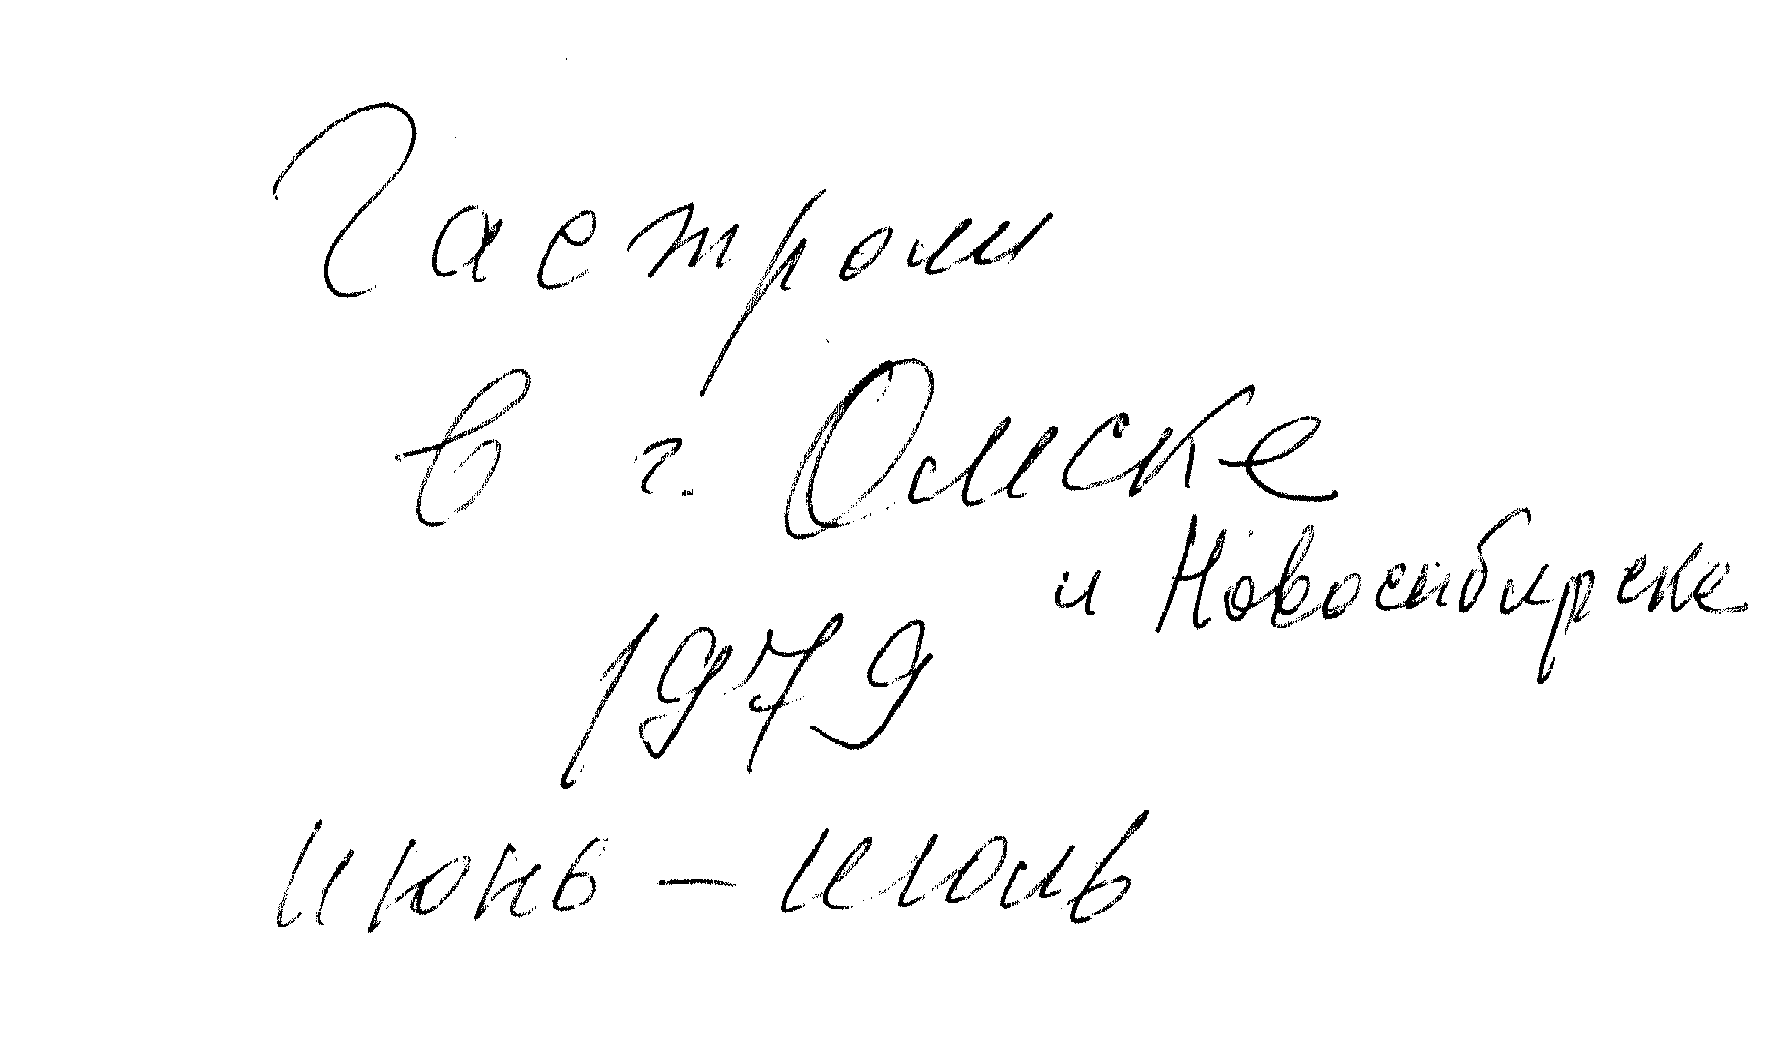 Гастроли
в г. Омске
и Новосибирске
1979
июнь – июль